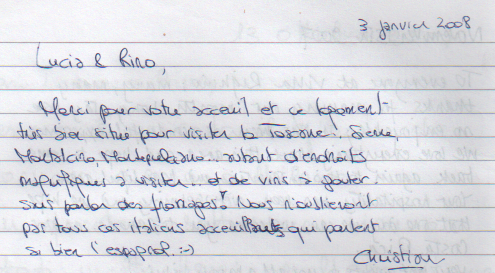 3 janvier 2008
Lucia & Rino,
Merci pour votre acceuil et ce logement
très bien situé pour visiter la Toscane! Sienne,
Montalcino, Montepulciano... autant d'endroits
magnifiques à visiter... et de vins à goûter.
sans parler des fromages! Nous n'oublieront
pas tous ces italiens acceuillants qui parlent
si bien l'espagnol. :-)
Christian